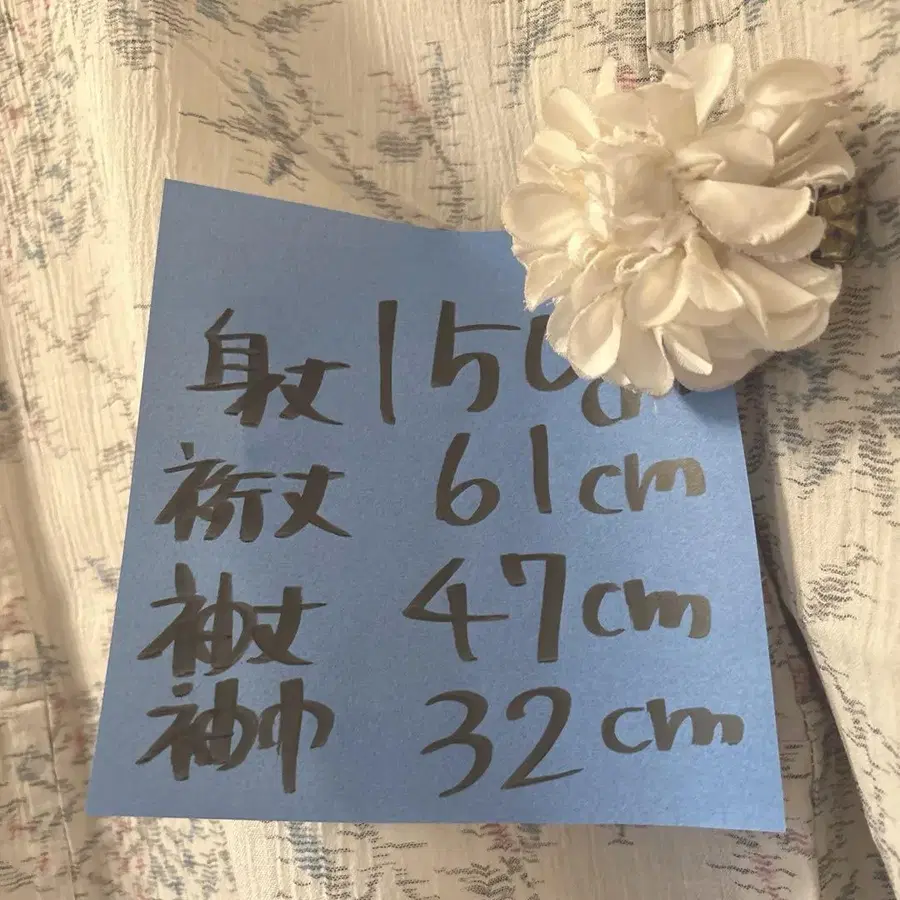 身丈 150cm
裄丈 61cm
袖丈 47cm
袖巾 32cm